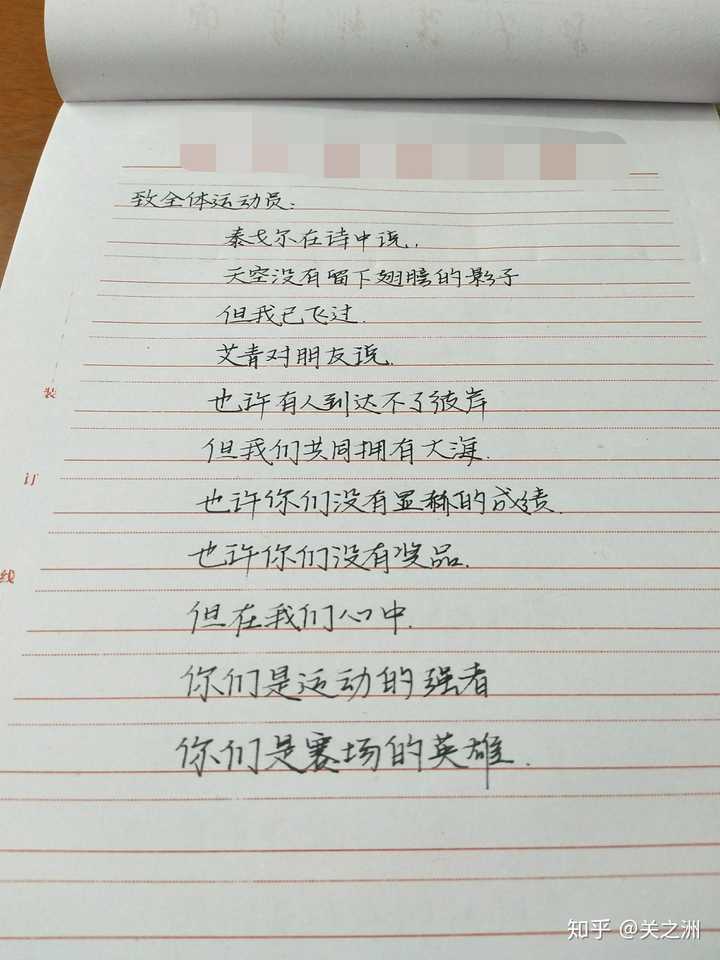 致全体运动员:
泰戈尔在诗中说,
天空没有留下翅膀的影子
但我已飞过.
艾青对朋友说.
也许有人到达不了彼岸
但我们共同拥有大海.
也许你们没有显赫的成绩.
也许你们没有奖品.
但在我们心中.
你们是运动的强者
你们是赛场的英雄.
装
订
线
知乎 @关之洲